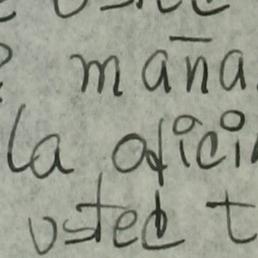 mañana
la ofici
usted t